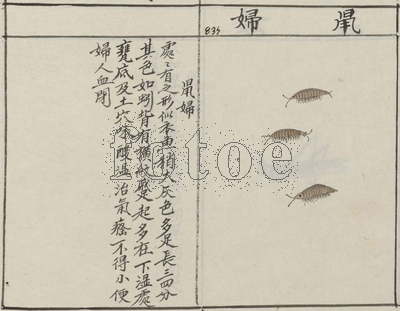 鼡婦
鼡婦
處〻有之形似衣魚稍大灰色多足長三四分
其色如蚓背有橫紋蹙起多在下濕處
甕底及土穴味酸溫治氣癃不得小便
婦人血閉